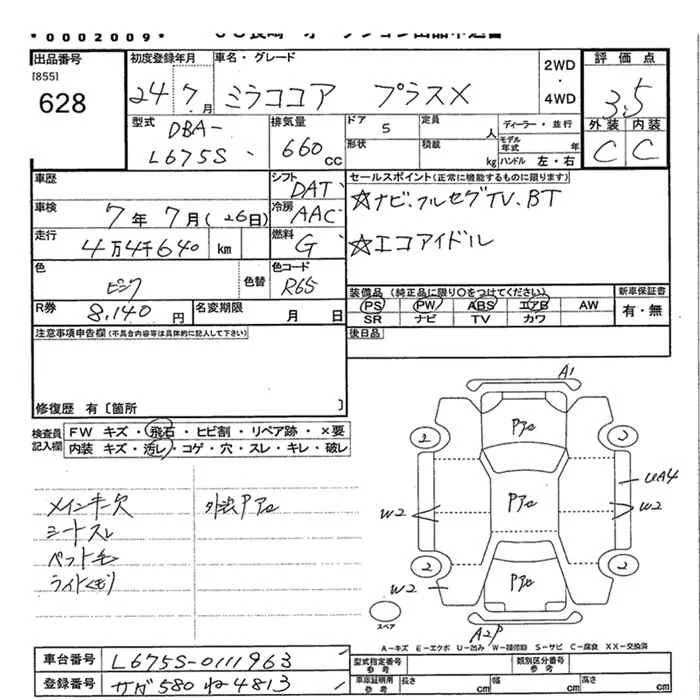 *0002009*
出品番号
[855]
628
初度登録年月
24 7月
車名・グレード
ミラココア プラスX
2WD
・
4WD
評価点
3.5
外装 内装
C C
型式
DBA-
L675S
排気量
660cc
ドア 5
定員 人
ディーラー・並行
形状
積載 kg
モデル年式 年
ハンドル 左・右
車歴
シフト DAT
車検 7年7月(26日)
冷房 AAC
走行 4万4千640 km
燃料 G
色 ピンク
色替
色コード R65
R券 8,140円
名変期限 月 日
セールスポイント(正常に機能するものに限ります)
☆ナビ.フルセグTV.BT
☆エコアイドル
装備品(純正品に限り○をつけてください)
PS PW ABS エアB AW
SR ナビ TV カワ
新車保証書
有・無
後日品
注意事項申告欄(不具合内容等は具体的に記入して下さい)
修復歴 有〔箇所 〕
検査員記入欄
FW キズ・飛石・ヒビ割・リペア跡・×要
内装 キズ・汚レ・コゲ・穴・スレ・キレ・破レ
メインキー欠
シートスレ
ペット毛
ライトくもり
外装Pアc
A1
Pアc
2 3
UA4
W2 Pアc W2
2 2
W2 Pアc
スペア
A2P
A-キズ E-エクボ U-凹み W-補修跡 S-サビ C-腐食 XX-交換済
車台番号 L675S-0111963
登録番号 サガ580ね4813
型式指定番号 参考
類別区分番号 参考
車庫証明用 参考
長さ cm
幅 cm
高さ cm